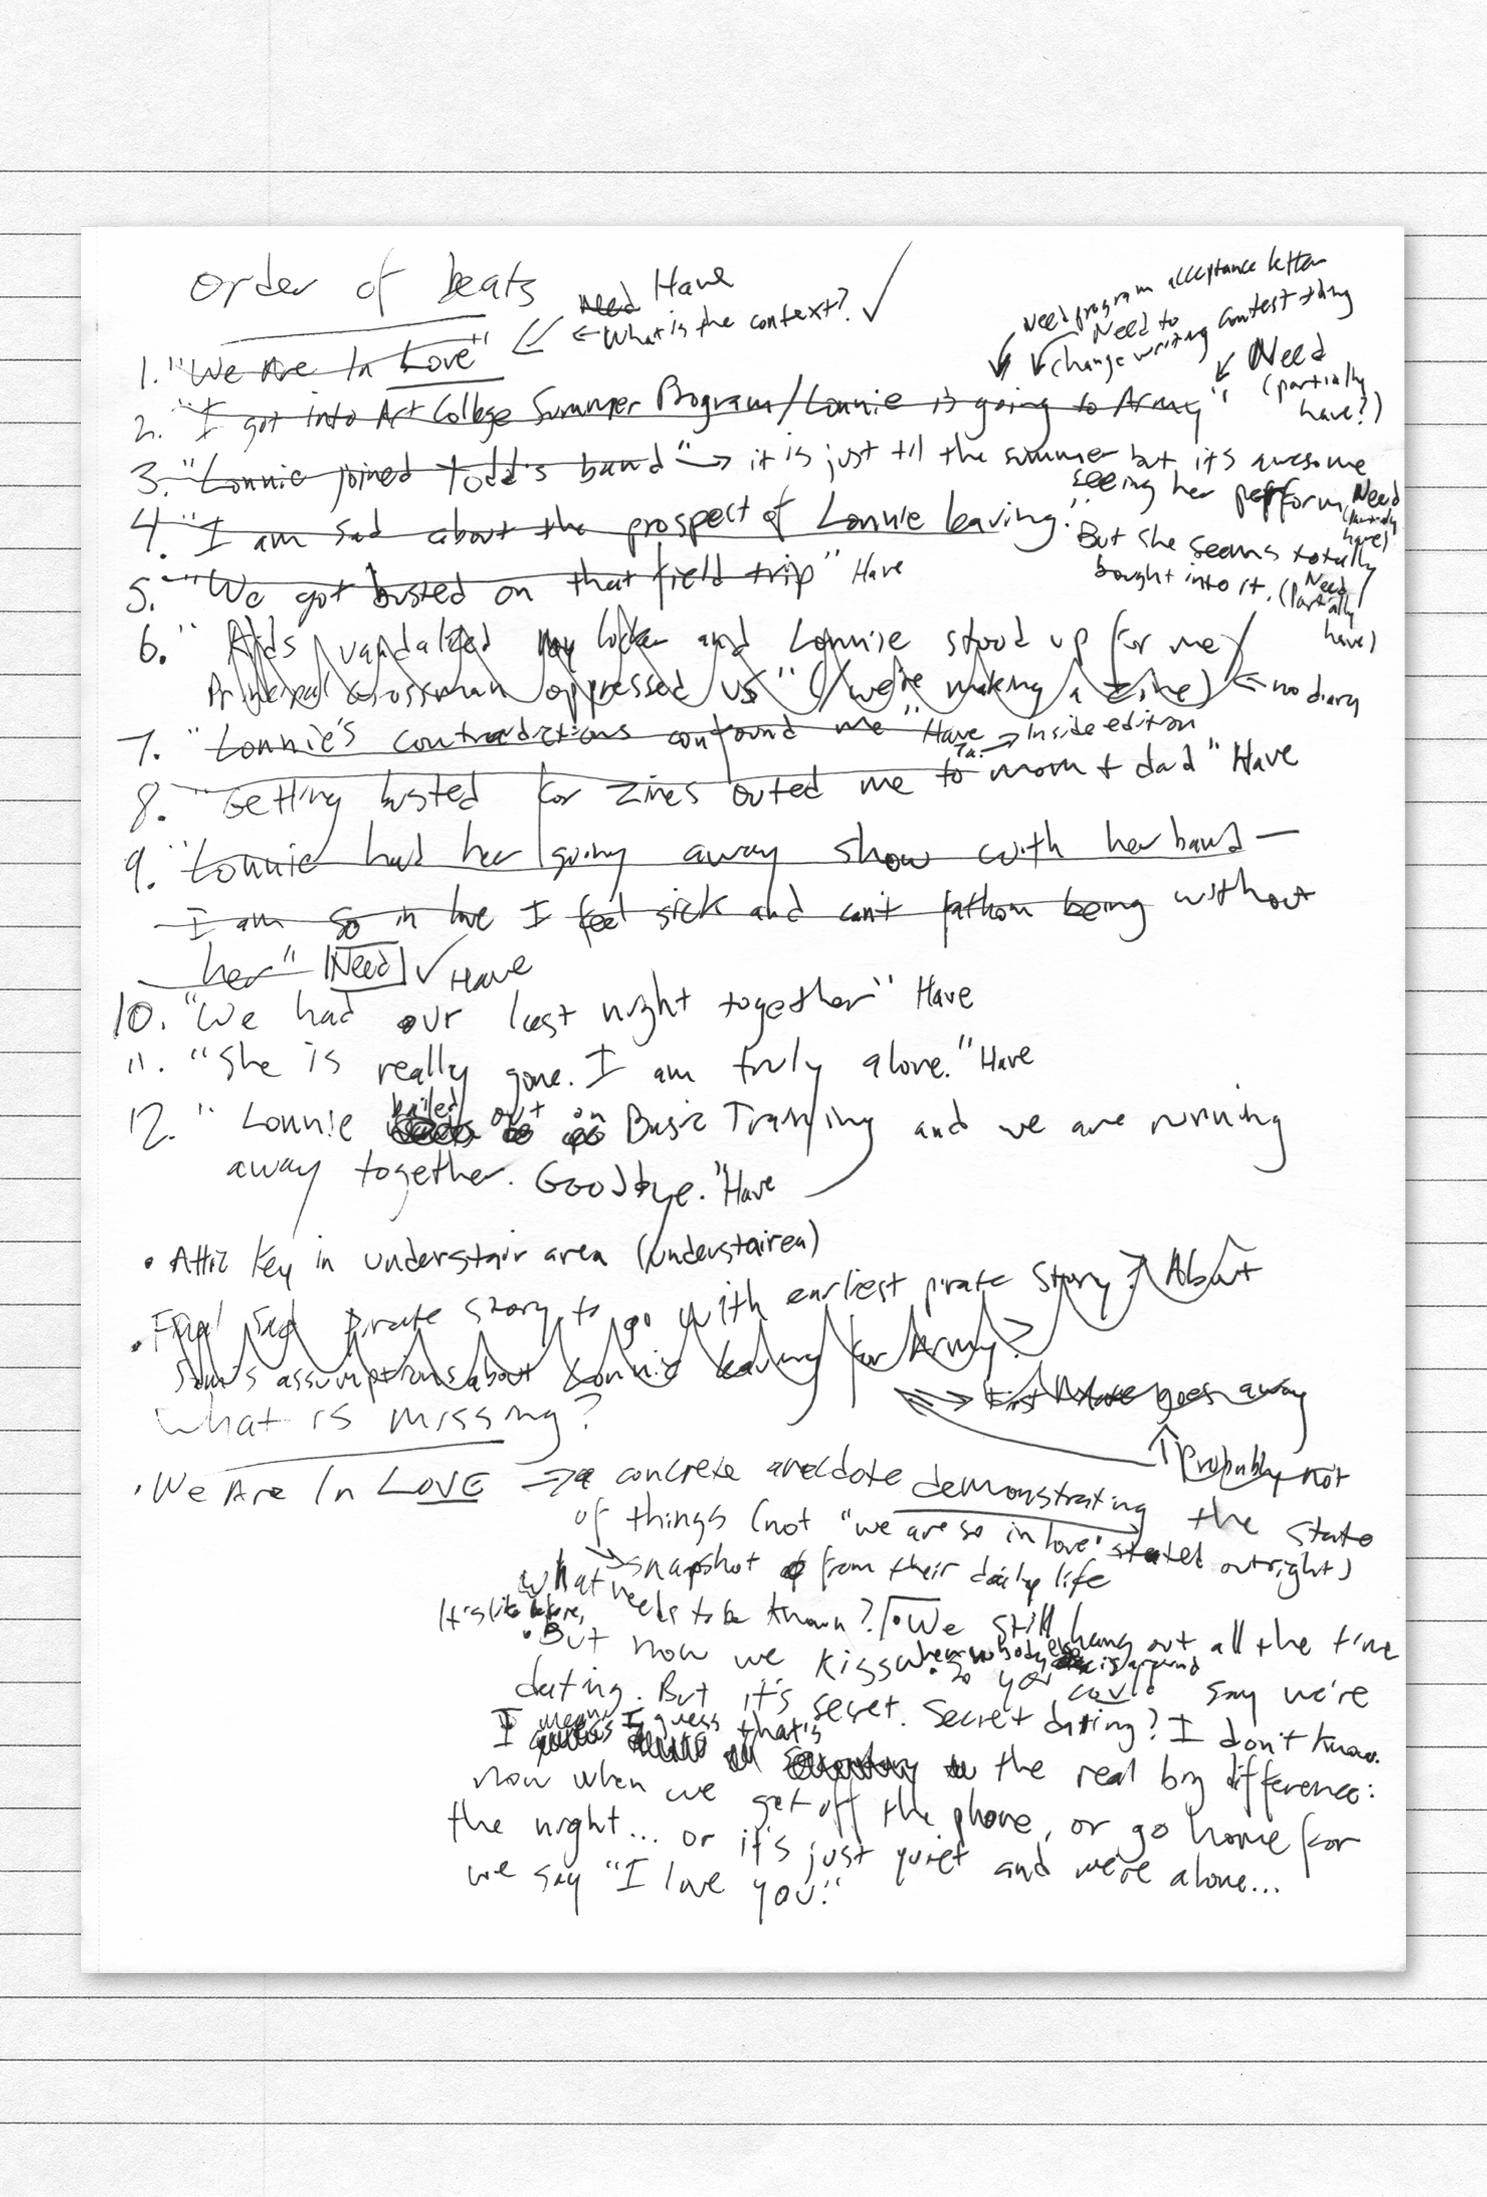 Order of beats
Need Have
← What is the context? ✓
Need program acceptance letter
Need to
change writing contest thing
1. "We Are In Love"
Need
(partially
have?)
2. "I got into Art College Summer Program/Lonnie is going to Army"
3. "Lonnie joined Todd's band" → it is just til the summer but it's awesome
seeing her perform Need
(partially
have)
4. "I am sad about the prospect of Lonnie leaving."
But she seems totally
bought into it. (Need
Partially
have)
5. "We got busted on that field trip" Have
6. "Kids vandalized my locker and Lonnie stood up for me/
Principal Grossman oppressed us" (/we're making a zine) ← no diary
7. "Lonnie's contradictions confound me" Have
7a. → Inside edition
8. "Getting busted for zines outed me to mom + dad" Have
9. "Lonnie had her going away show with her band —
I am so in love I feel sick and can't fathom being without
her" Need ✓ Have
10. "We had our last night together" Have
11. "She is really gone. I am truly alone." Have
12. "Lonnie bailed out on Basic Training and we are running
away together. Goodbye." Have
• Attic key in understair area (understairea)
• Final Sad pirate story to go with earliest pirate story? About
Sam's assumptions about Lonnie leaving for Army?
goes away
↑ Probably not
What is missing?
• We Are In LOVE → a concrete anecdote demonstrating the state
of things (not "we are so in love" stated outright)
→ snapshot from their daily life
What needs to be known? • We still hang out all the time
It's like before,
• But now we kiss when nobody else is around
• So you could say we're
dating. But it's secret. Secret dating? I don't know.
I mean, I guess that's the real big difference:
now when we get off the phone, or go home for
the night... or it's just quiet and we're alone...
we say "I love you."